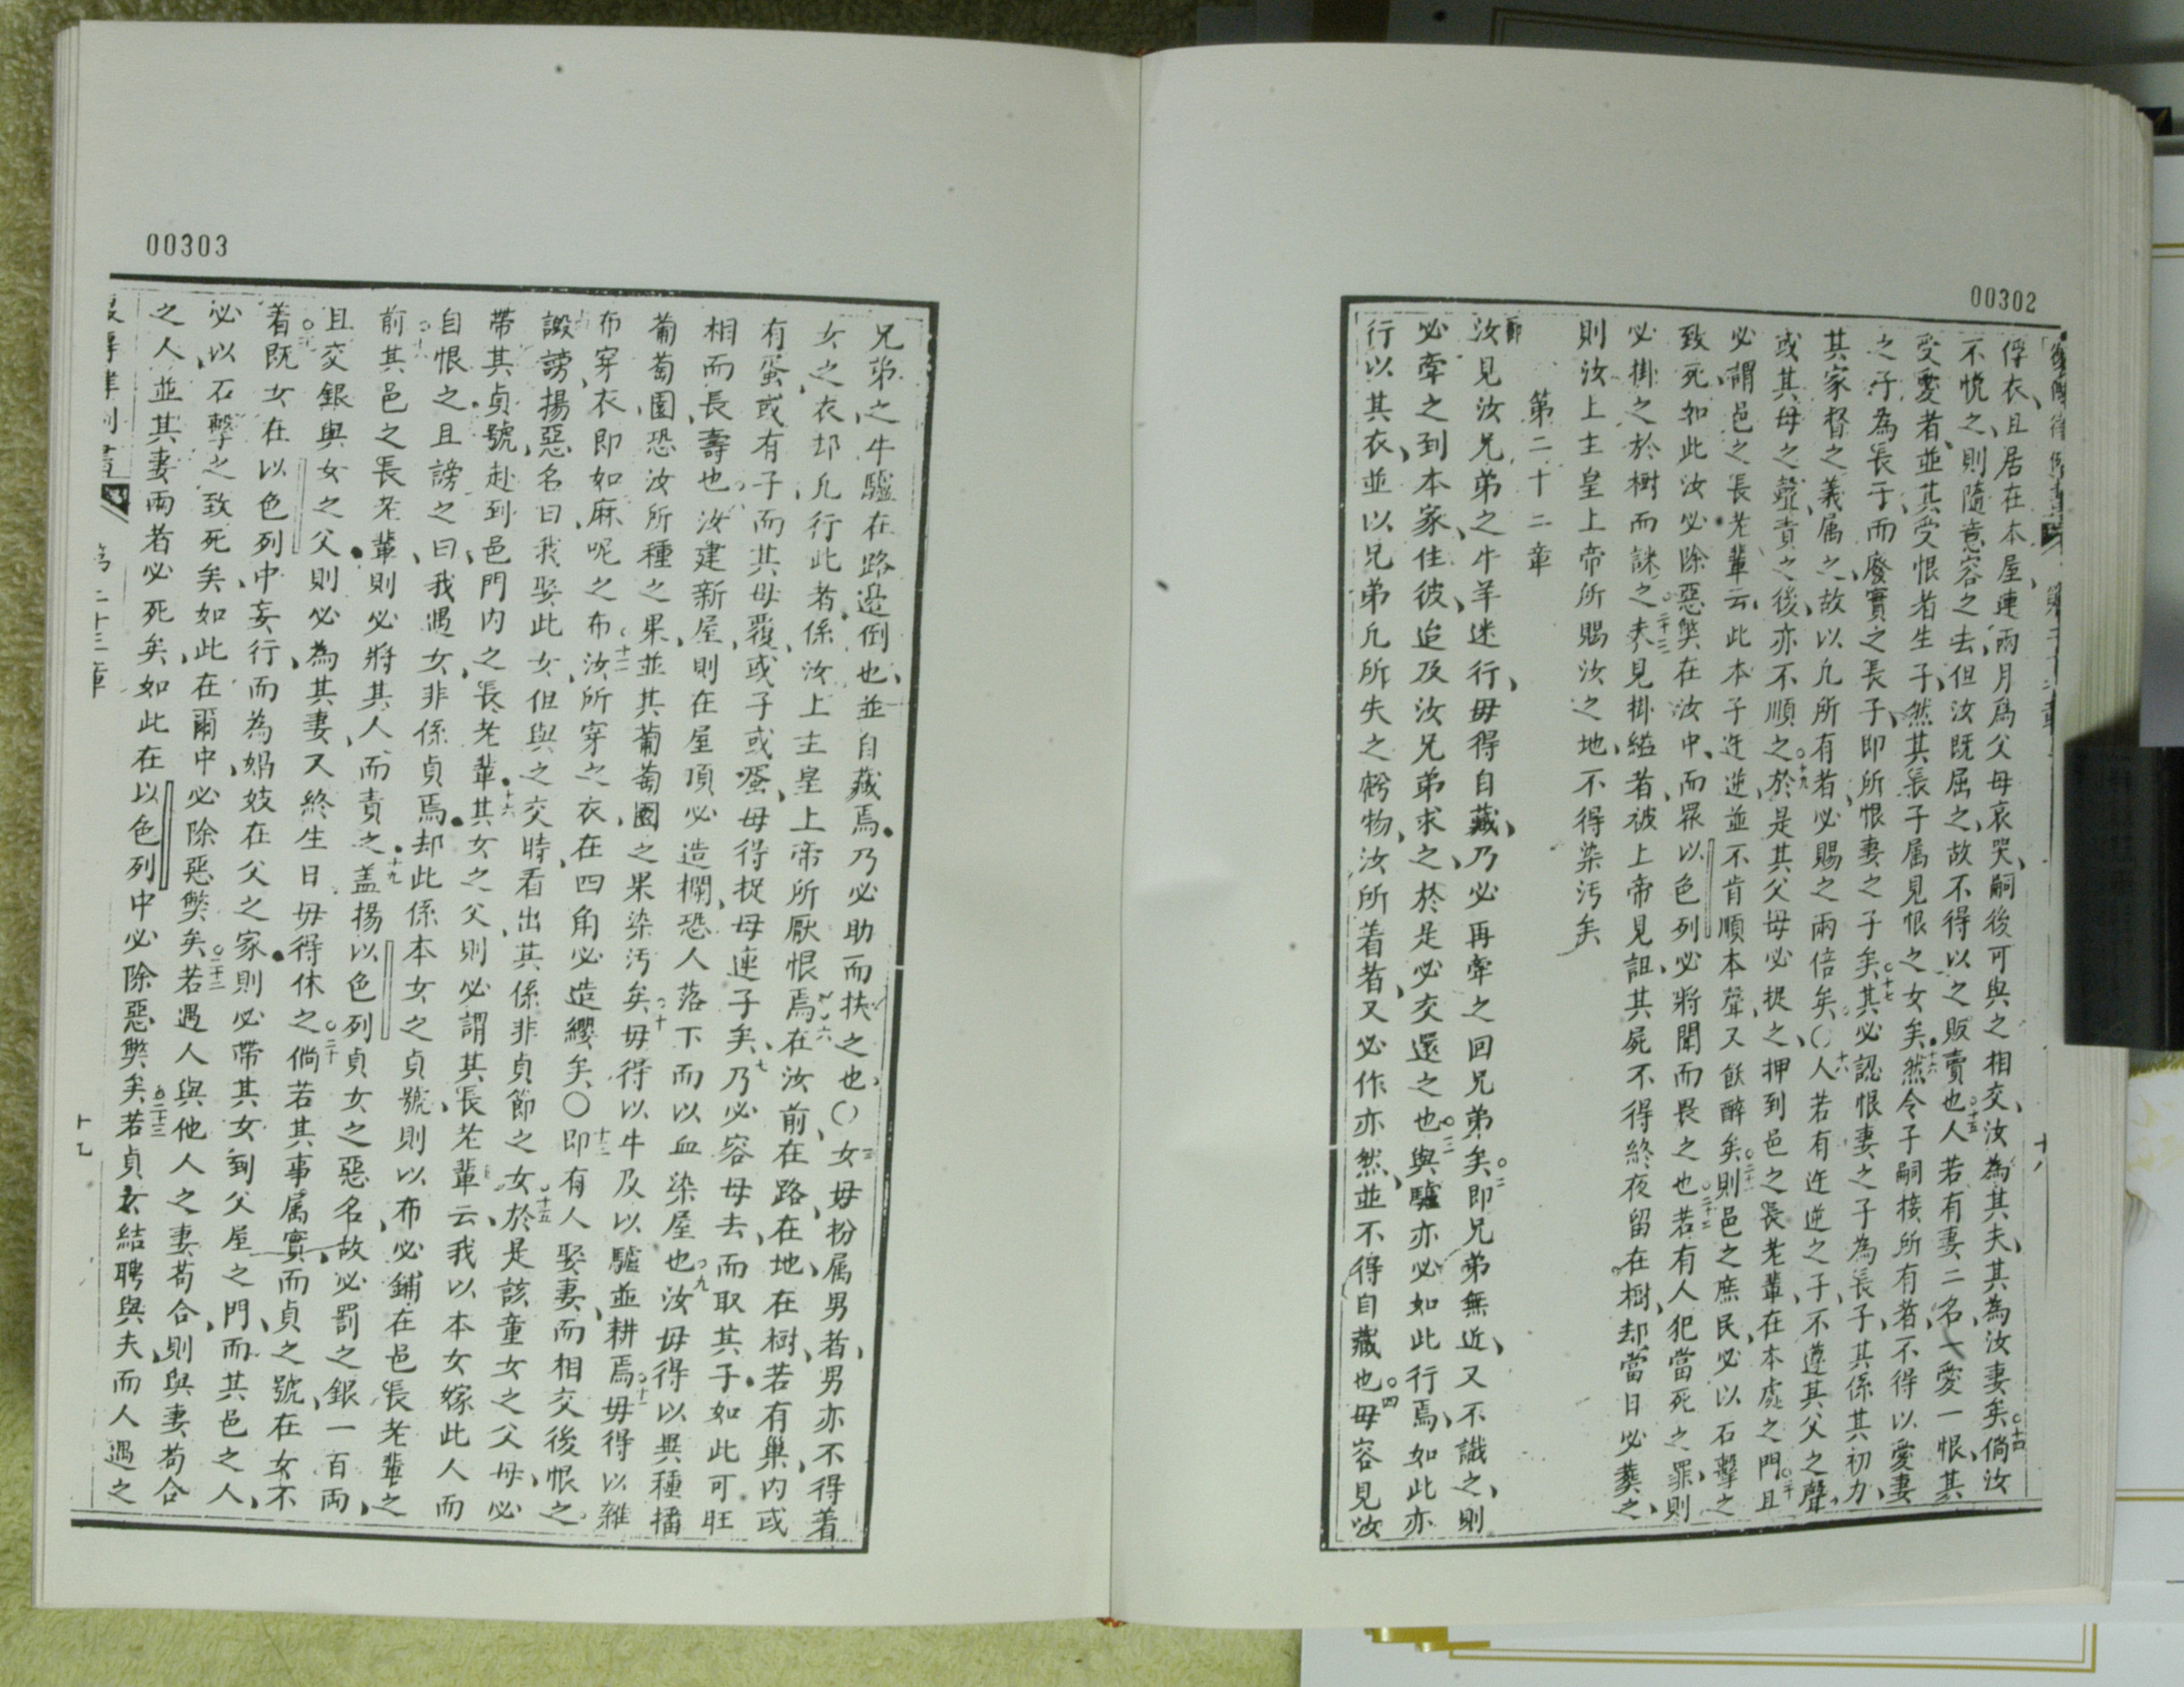 00302
俘衣、且居在本屋、連兩月爲父母哀哭、嗣後可與之相交、汝為其夫、其為汝妻矣、○十四倘汝
不悅之、則隨意容之去、但汝既屈之、故不得以之販賣也、○十五人若有妻二名、一愛一恨、其
受愛者、並其受恨者生子、然其長子属見恨之女矣、○十六然令子嗣接所有者、不得以愛妻
之子為長子、而廢實之長子、即所恨妻之子矣、○十七其必認恨妻之子為長子、其係其初力、
其家督之義属之、故以凡所有者、必賜之兩倍矣、○十八人若有迕逆之子、不遵其父之聲、
或其母之聲、責之後、亦不順之、○十九於是其父母必捉之、押到邑之長老輩、在本處之門、○二十且
必謂邑之長老輩云、此本子迕逆、並不肯順本聲、又飲醉矣、○二十一則邑之庶民、必以石擊之
致死、如此汝必除惡弊在汝中、而衆以色列必將聞而畏之也、○二十二若有人犯當死之罪、則
必掛之於樹而謎之、○二十三夫見掛縊者、被上帝見詛、其屍不得終夜留在樹、却當日必葬之、
則汝上主皇上帝所賜汝之地、不得染汚矣
第二十二章
節汝見汝兄弟之牛羊迷行、毋得自藏、乃必再牽之回兄弟矣、○二即兄弟無近、又不識之、則
必牽之到本家、住彼、迨及汝兄弟求之、於是必交還之也、○三與驢亦必如此行焉、如此亦
行以其衣、並以兄弟凡所失之物、汝所着者、又必作亦然、並不得自藏也、○四毋容見汝
00303
兄弟之牛驢在路邉倒也、並自藏焉、乃必助而扶之也、○五女毋扮属男者、男亦不得着
女之衣、却凡行此者、係汝上主皇上帝所厭恨焉、○六在汝前、在路、在地、在樹、若有巢、內或
有蛋、或有子、而其母覆、或子或蛋、毋得捉母連子矣、○七乃必容母去、而取其子、如此可旺
相而長壽也、○八汝建新屋、則在屋頂必造欄、恐人落下、而以血染屋也、○九汝毋得以異種播
葡萄園、恐汝所種之果、並其葡萄園之果染汚矣、○十毋得以牛及以驢並耕焉、○十一毋得以雜
布穿衣、即如麻呢之布、○十二汝所穿之衣、在四角必造纓矣、○十三即有人娶妻、而相交後恨之、
○十四譭謗揚惡名曰、我娶此女、但與之交時、看出其係非貞節之女、○十五於是該童女之父母、必
帶其貞號、赴到邑門內之長老輩、○十六其女之父、則必謂其長老輩云、我以本女嫁此人、而
自恨之、○十七且謗之曰、我遇女非係貞焉、却此係本女之貞號、則以布必鋪在邑長老輩之
前、○十八其邑之長老輩、則必將其人而責之、○十九盖揚以色列貞女之惡名、故必罰之銀一百両、
且交銀與女之父、則必為其妻、又終生日毋得休之、○二十倘若其事属實、而貞之號在女不
着、○二十一既女在以色列中妄行、而為娼妓在父之家、則必帶其女到父屋之門、而其邑之人、
必以石擊之致死矣、如此在爾中必除惡弊矣、○二十二若遇人與他人之妻苟合、則與妻苟合
之人、並其妻兩者必死矣、如此在以色列中必除惡弊矣、○二十三若貞女結聘與夫、而人遇之
第二十二章
十九